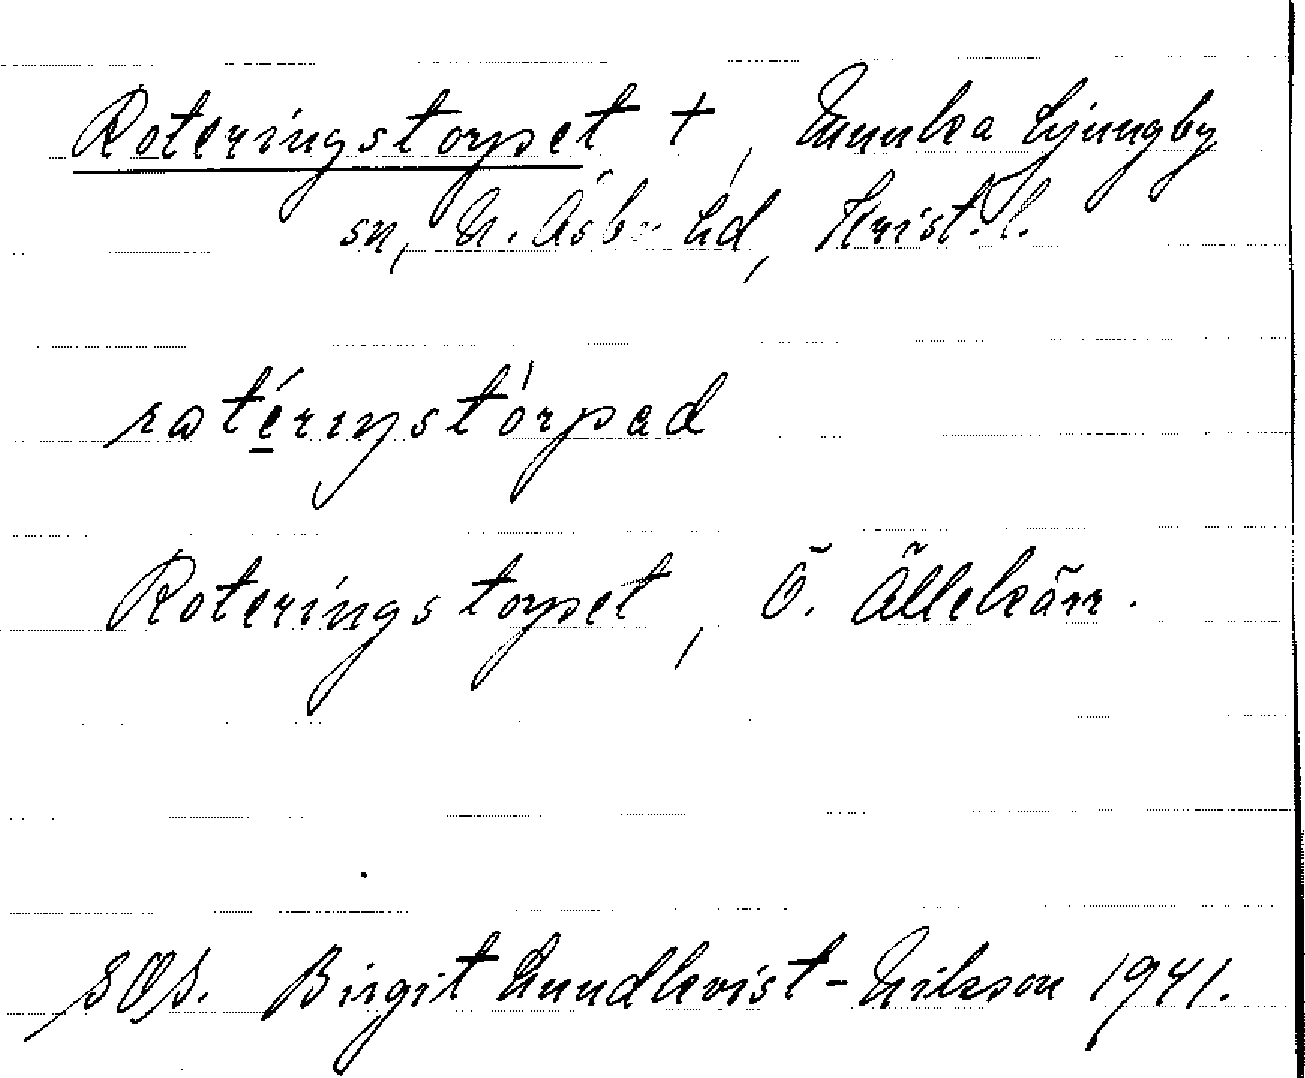 Roteringstorpet +, Munka Ljungby
sn, N. Åsbo hd, Krist. l.
rotériŋstórpəd
Roteringstorpet, Ö. Ällekärr.
SOS. Birgit Lundkvist-Nilsson 1941.